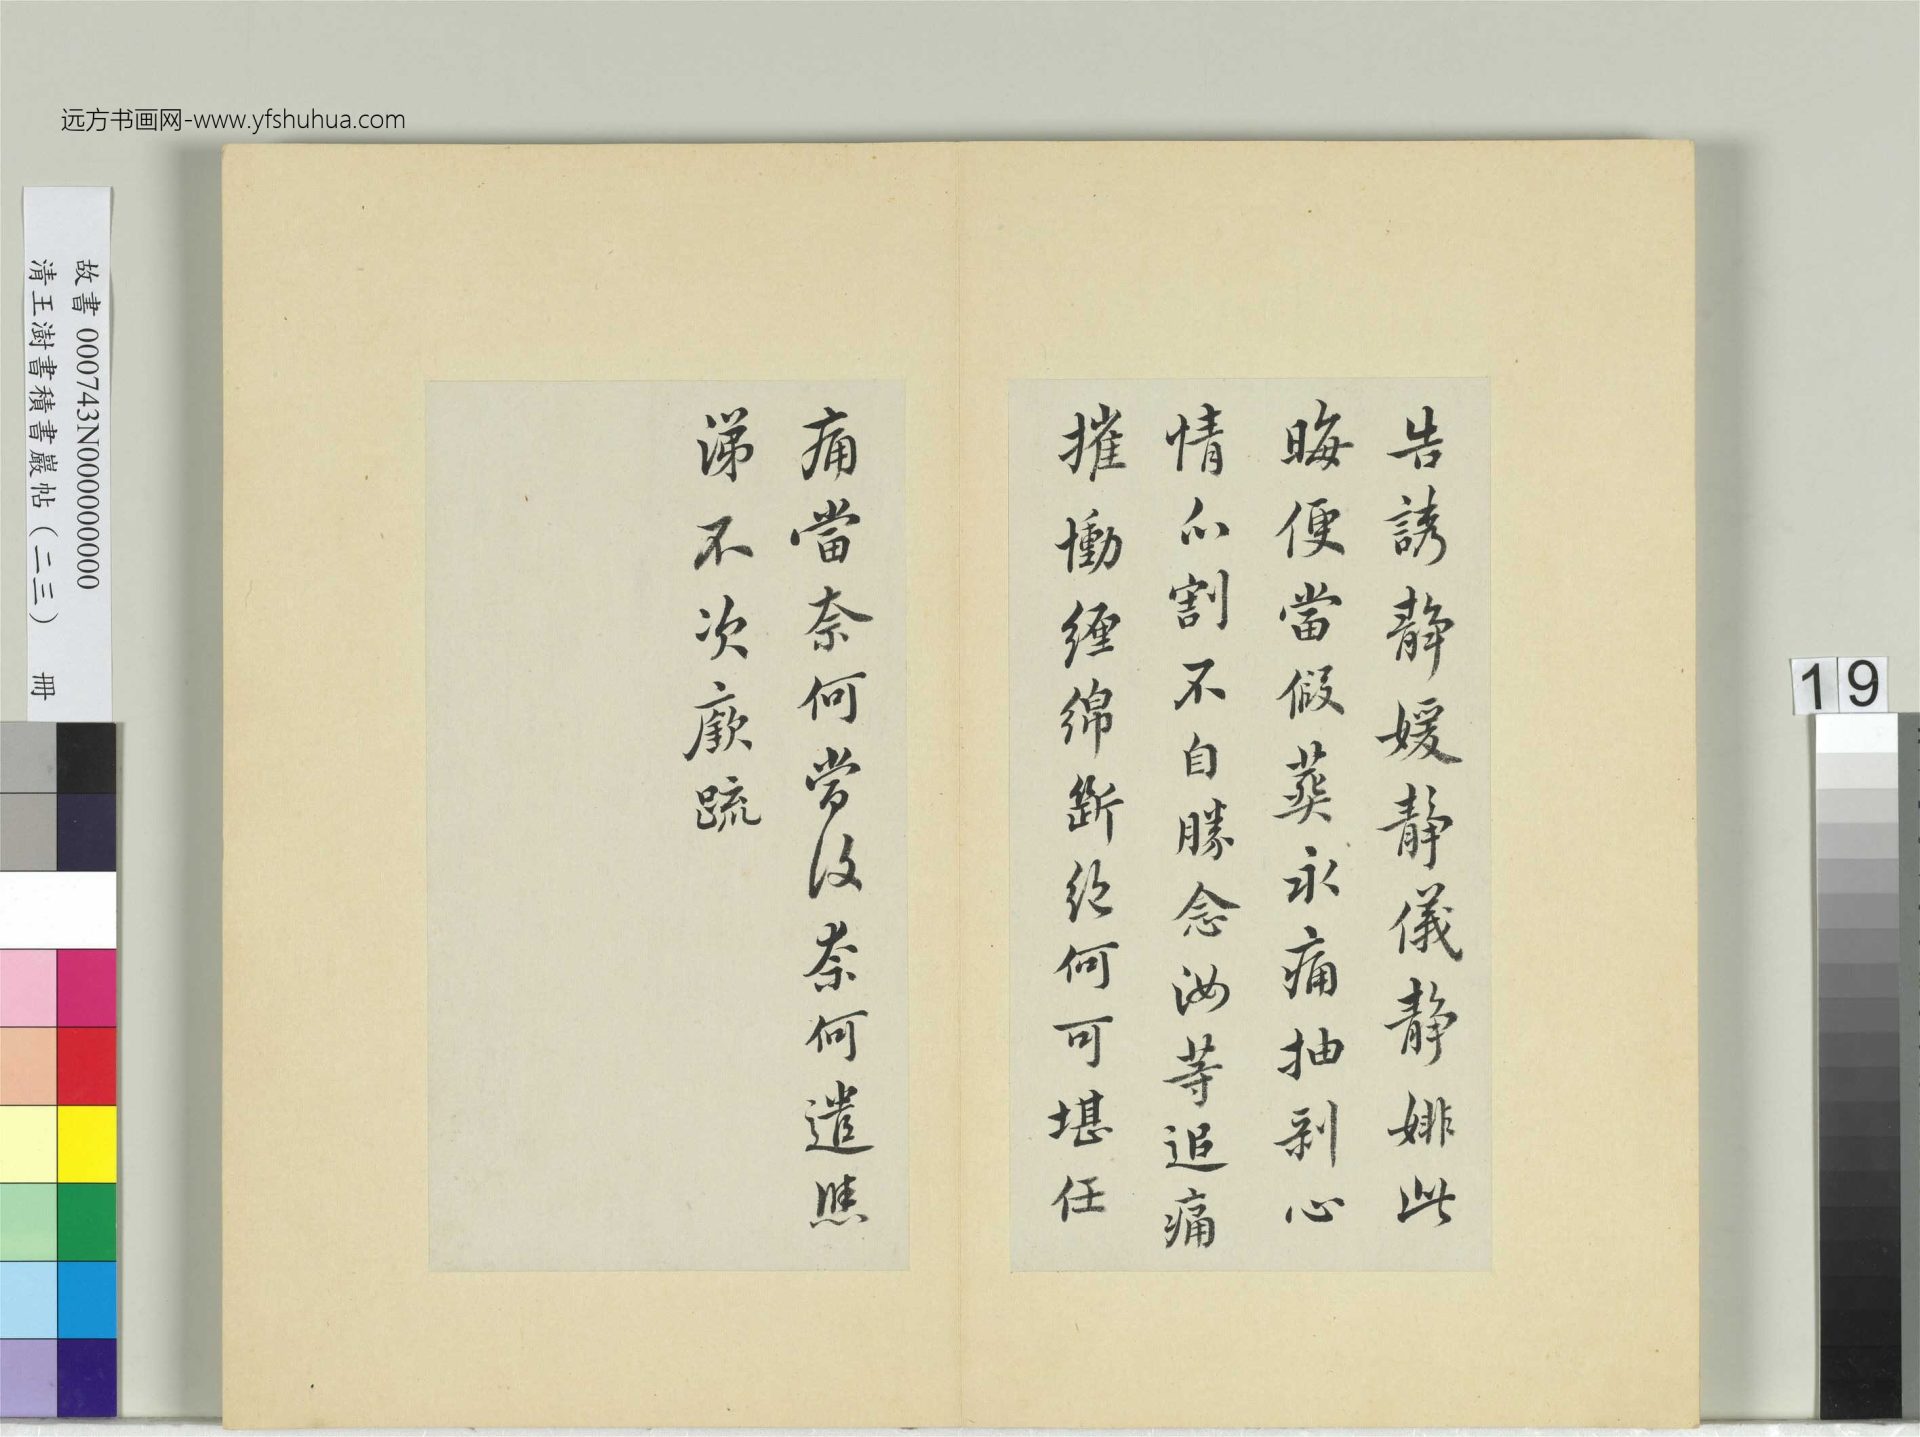 远方书画网-www.yfshuhua.com
故書 000743N000000000
清王澍書積書巖帖（二三） 冊
19
告誘靜媛靜儀靜姚此
晦便當假葬永痛抽剝心
情心割不自勝念汝等追痛
摧慟纏綿斷絕何可堪任
痛當奈何當復奈何遣
涕不次廞疏